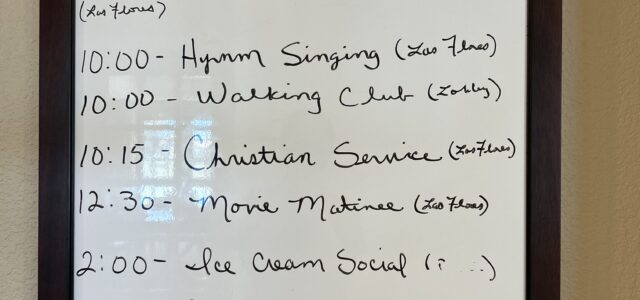 (Las Flores)
10:00 - Hymn Singing (Las Flores)
10:00 - Walking Club (Lobby)
10:15 - Christian Service (Las Flores)
12:30 - Movie Matinee (Las Flores)
2:00 - Ice Cream Social